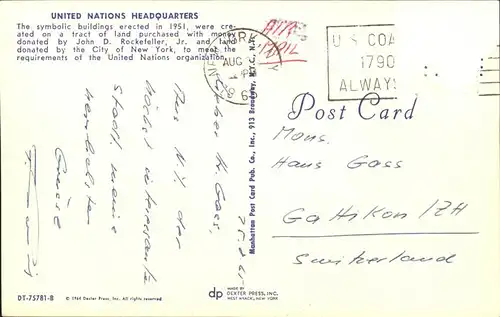 UNITED NATIONS HEADQUARTERS
The symbolic buildings erected in 1951, were cre-
ated on a tract of land purchased with money
donated by John D. Rockefeller, Jr. and land
donated by the City of New York, to meet the
requirements of the United Nations organization.
AIR
MAIL
YORK
AUG
U S COA
1790
ALWAYS
Post Card
Mons.
Hans Gass
Gattikon/ZH
Switzerland
25.8.65
Lieber H. Gass,
Aus N.Y. der
höchst interessante
Stadt, meine
herzlichsten
Grüsse
Manhattan Post Card Pub. Co., Inc., 913 Broadway, N.Y.C., N.Y.
DT-75781-B
© 1964 Dexter Press, Inc. All rights reserved.
dp
MADE BY
DEXTER PRESS, INC.
WEST NYACK, NEW YORK